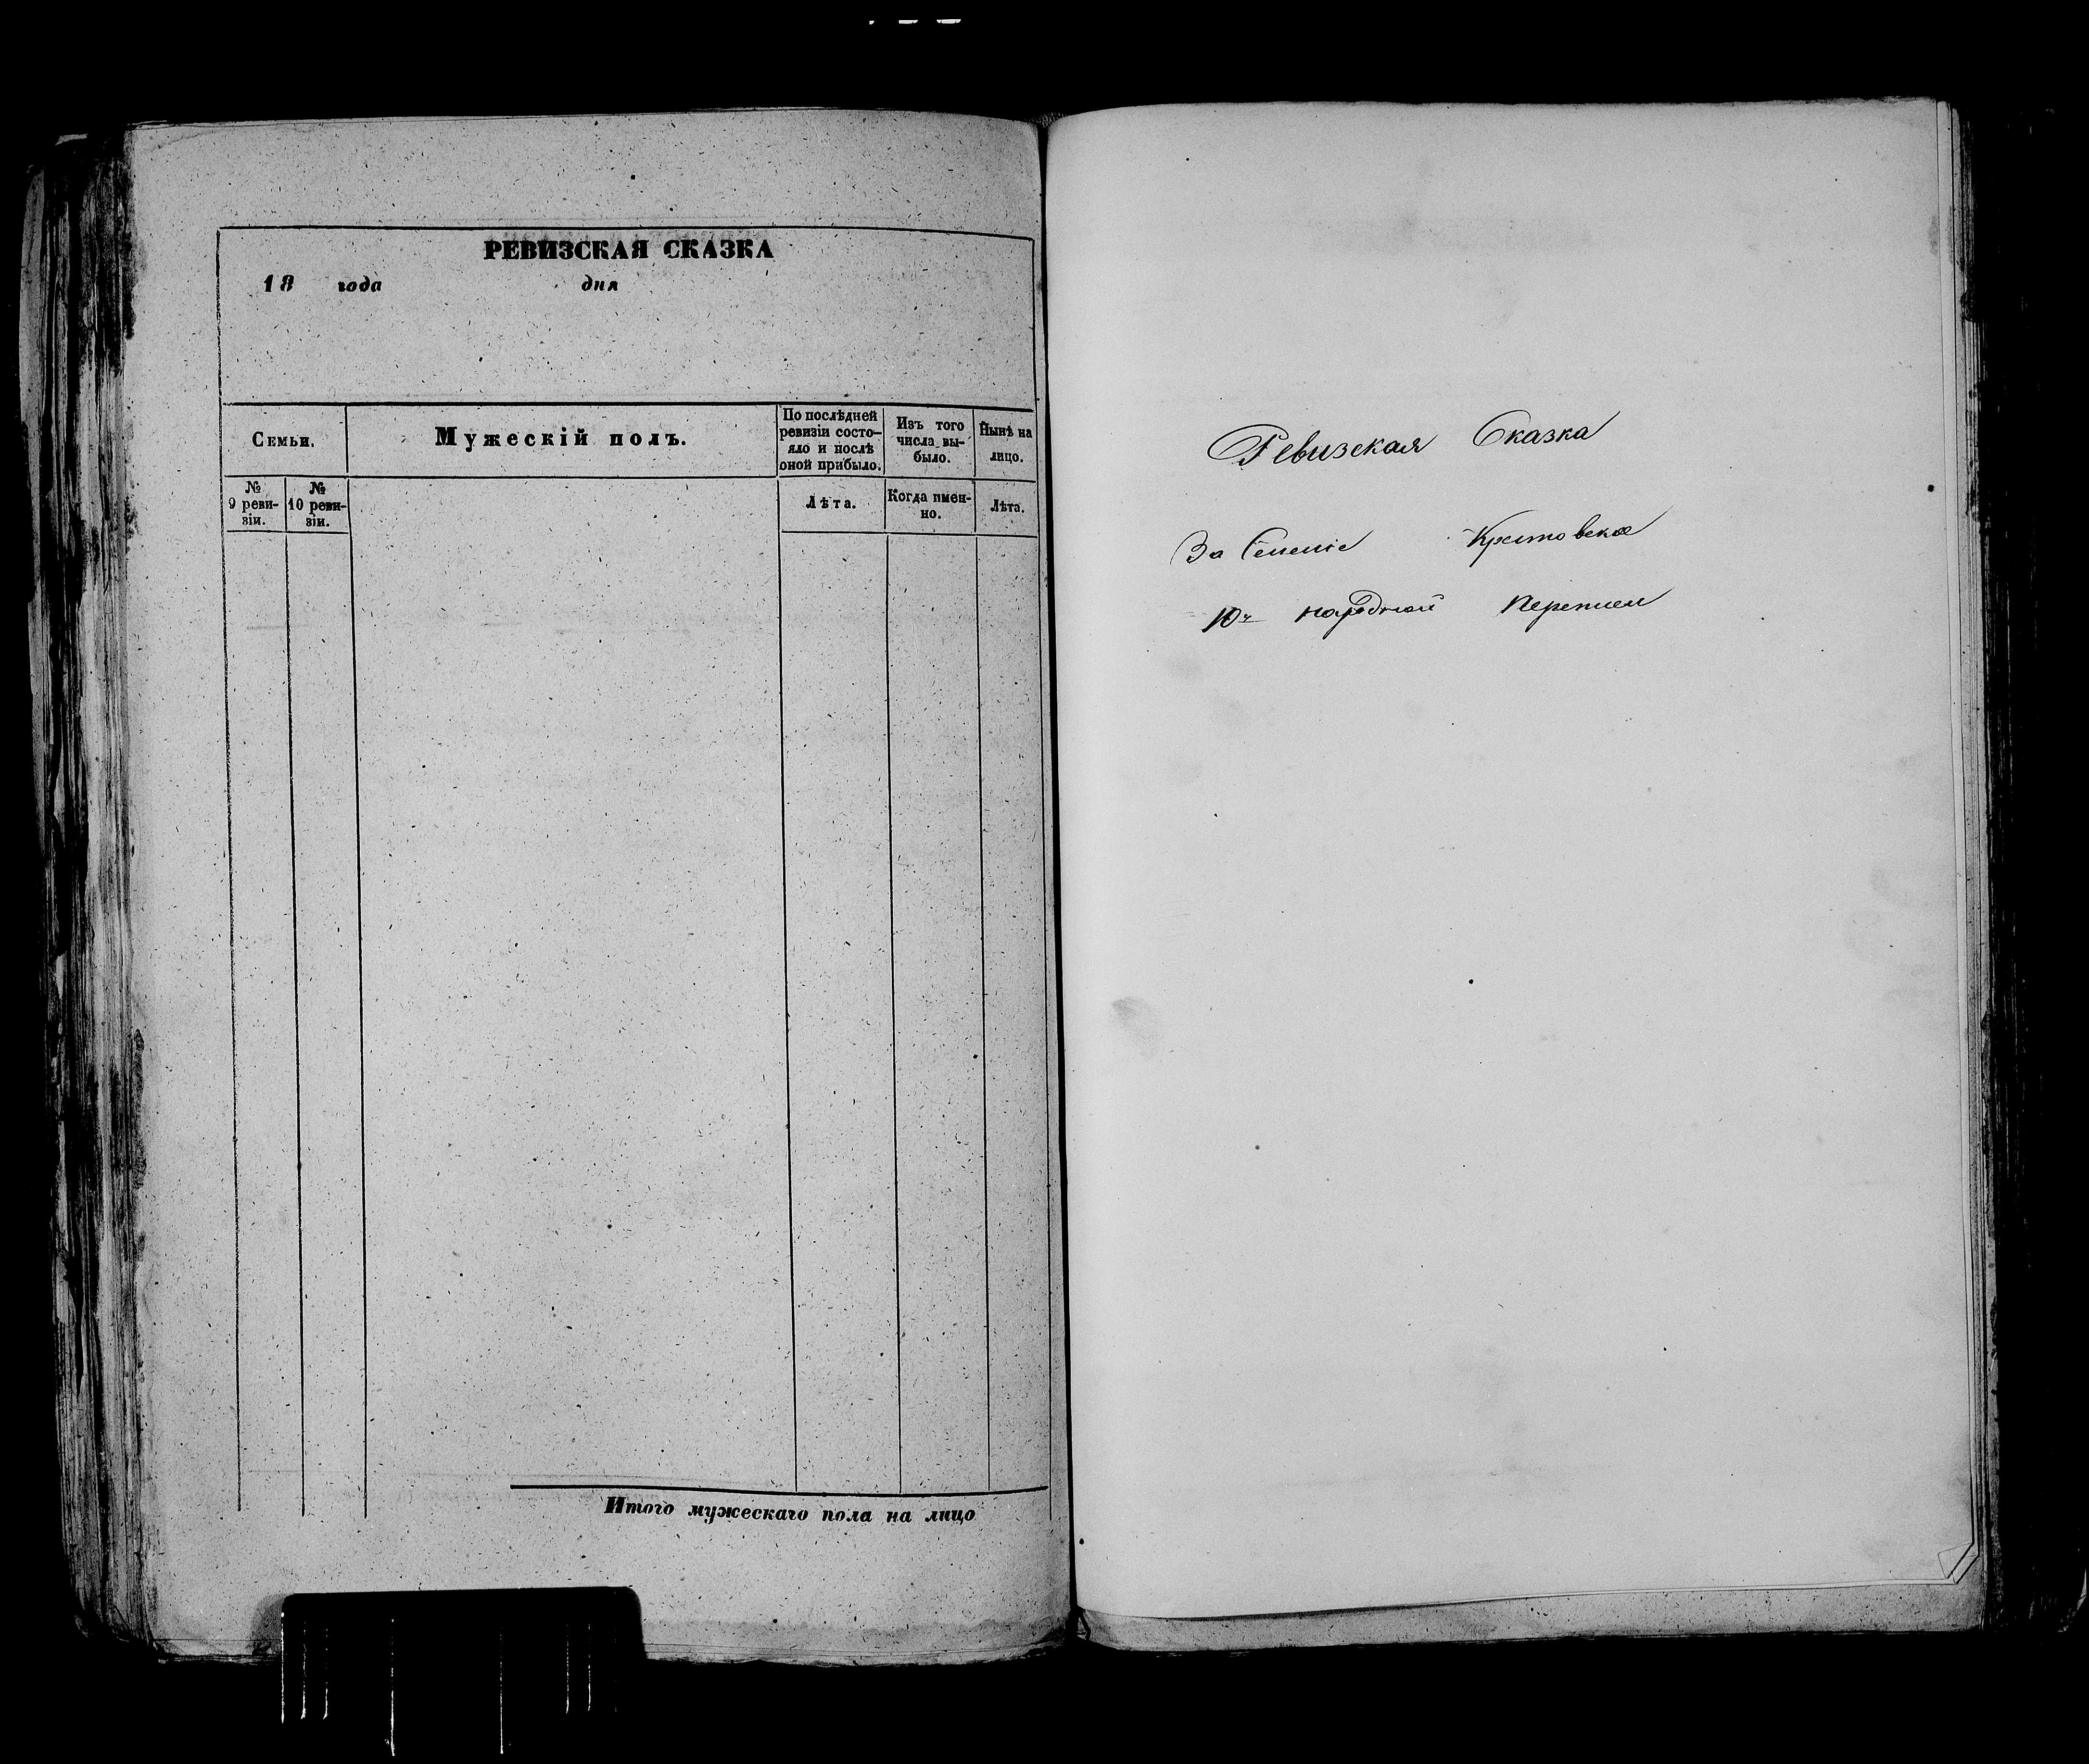 РЕВИЗСКАЯ СКАЗКА
18 года дня
Семьи.
Мужескій полъ.
По послѣдней
ревизіи состо-
яло и послѣ
оной прибыло.
Изъ того
числа вы-
было.
Нынѣ на
лицо.
№
9 реви-
зіи.
№
10 реви-
зіи.
Лѣта.
Когда имен-
но.
Лѣта.
Итого мужескаго пола на лицо
Ревизская Сказка
За Селеніе
10й народной Переписи